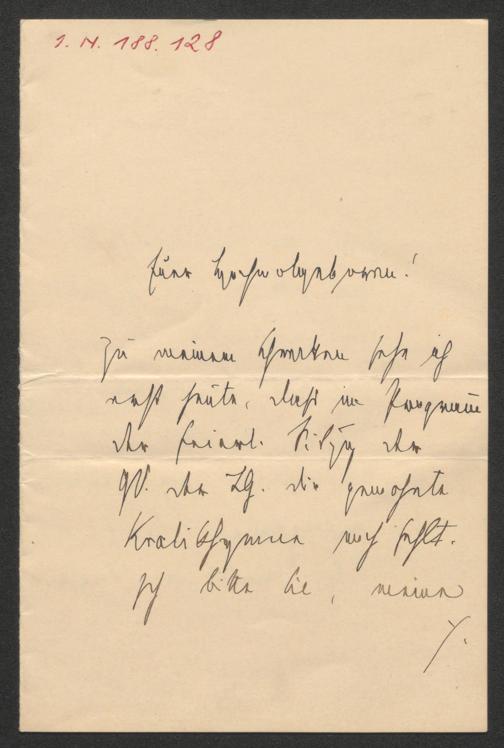 I. N. 188.128
Euer Hochwolgeboren!
Zu meinem Schrecken sehe ich
erst heute, daß im Programm
der feierl. Sitzg der
GV. der LG. die gewohnte
Kralikhymne noch fehlt.
Ich bitte Sie, meine